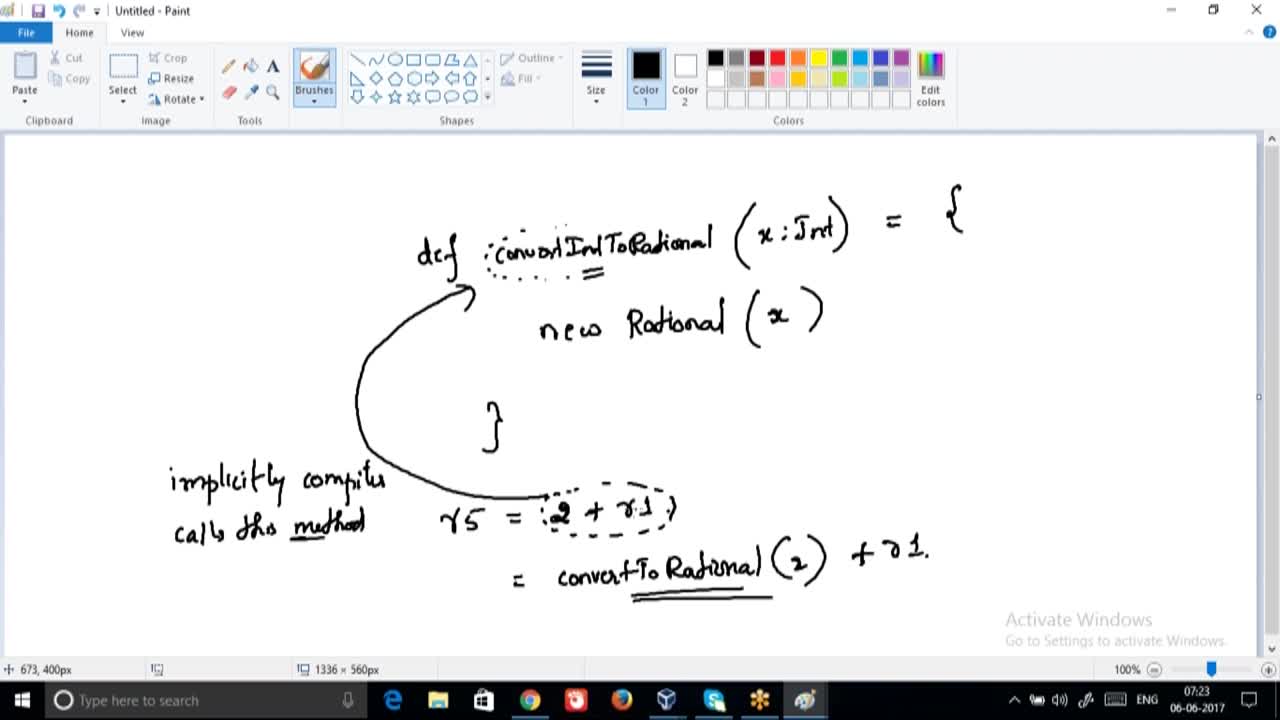 Untitled - Paint
File
Home
View
Paste
Cut
Copy
Clipboard
Select
Crop
Resize
Rotate
Image
Tools
Brushes
Shapes
Outline
Fill
Size
Color 1
Color 2
Edit colors
Colors
def convertIntToRational (x : Int) = {
new Rational (x)
}
implicitly compiler
calls this method
r5 = 2 + r1
= convertToRational (2) + r1.
Activate Windows
Go to Settings to activate Windows.
673, 400px
1336 × 560px
100%
Type here to search
ENG
07:23
06-06-2017